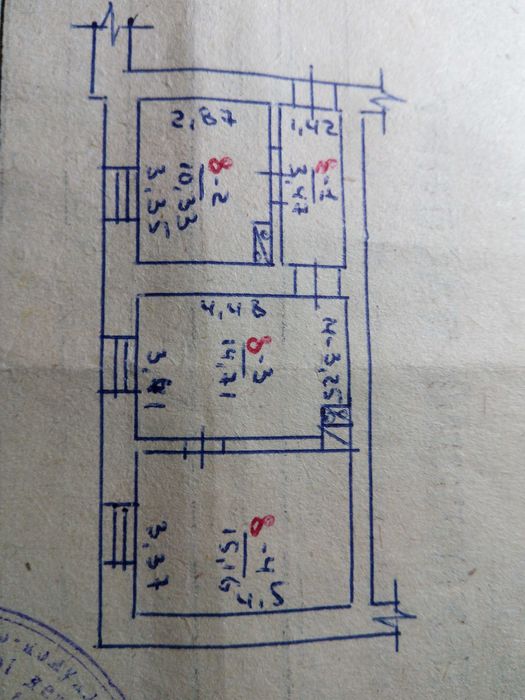 2,87
1,42
8-2
10,33
3,35
8-1
3,47
4,48
H-3,25
8-3
14,71
3,41
8-4
15,16
3,37